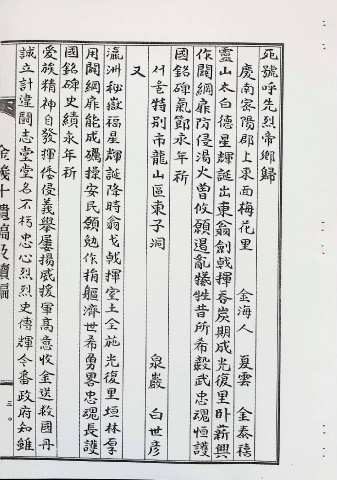 死號呼先烈帝鄉歸
慶南密陽郡上東面梅花里 金海人 夏雲 金泰禧
靈山太白德星輝誕出東翁劍戟揮吞炭期成光復里臥薪興
作闢網扉防侵湯火曾攸願退亂犧牲昔所希毅武忠魂恒護
國銘碑氣節永年祈
서울特別市龍山區東子洞 泉巖 白世彥
又
瀛洲秘嶽福星輝誕降時翁戈戟揮室土全施光復里垣林厚
用闢網扉能成礪操安民願勉作捐軀濟世希勇畧忠魂長護
國銘碑史績永年祈
愛族精神自發揮倭侵義擧屢揚威援軍高意收金送救國丹
誠立計違鬪志堂堂名不朽忠心烈烈史傳輝令番政府知雖
金義士遺稿及續編
三〇